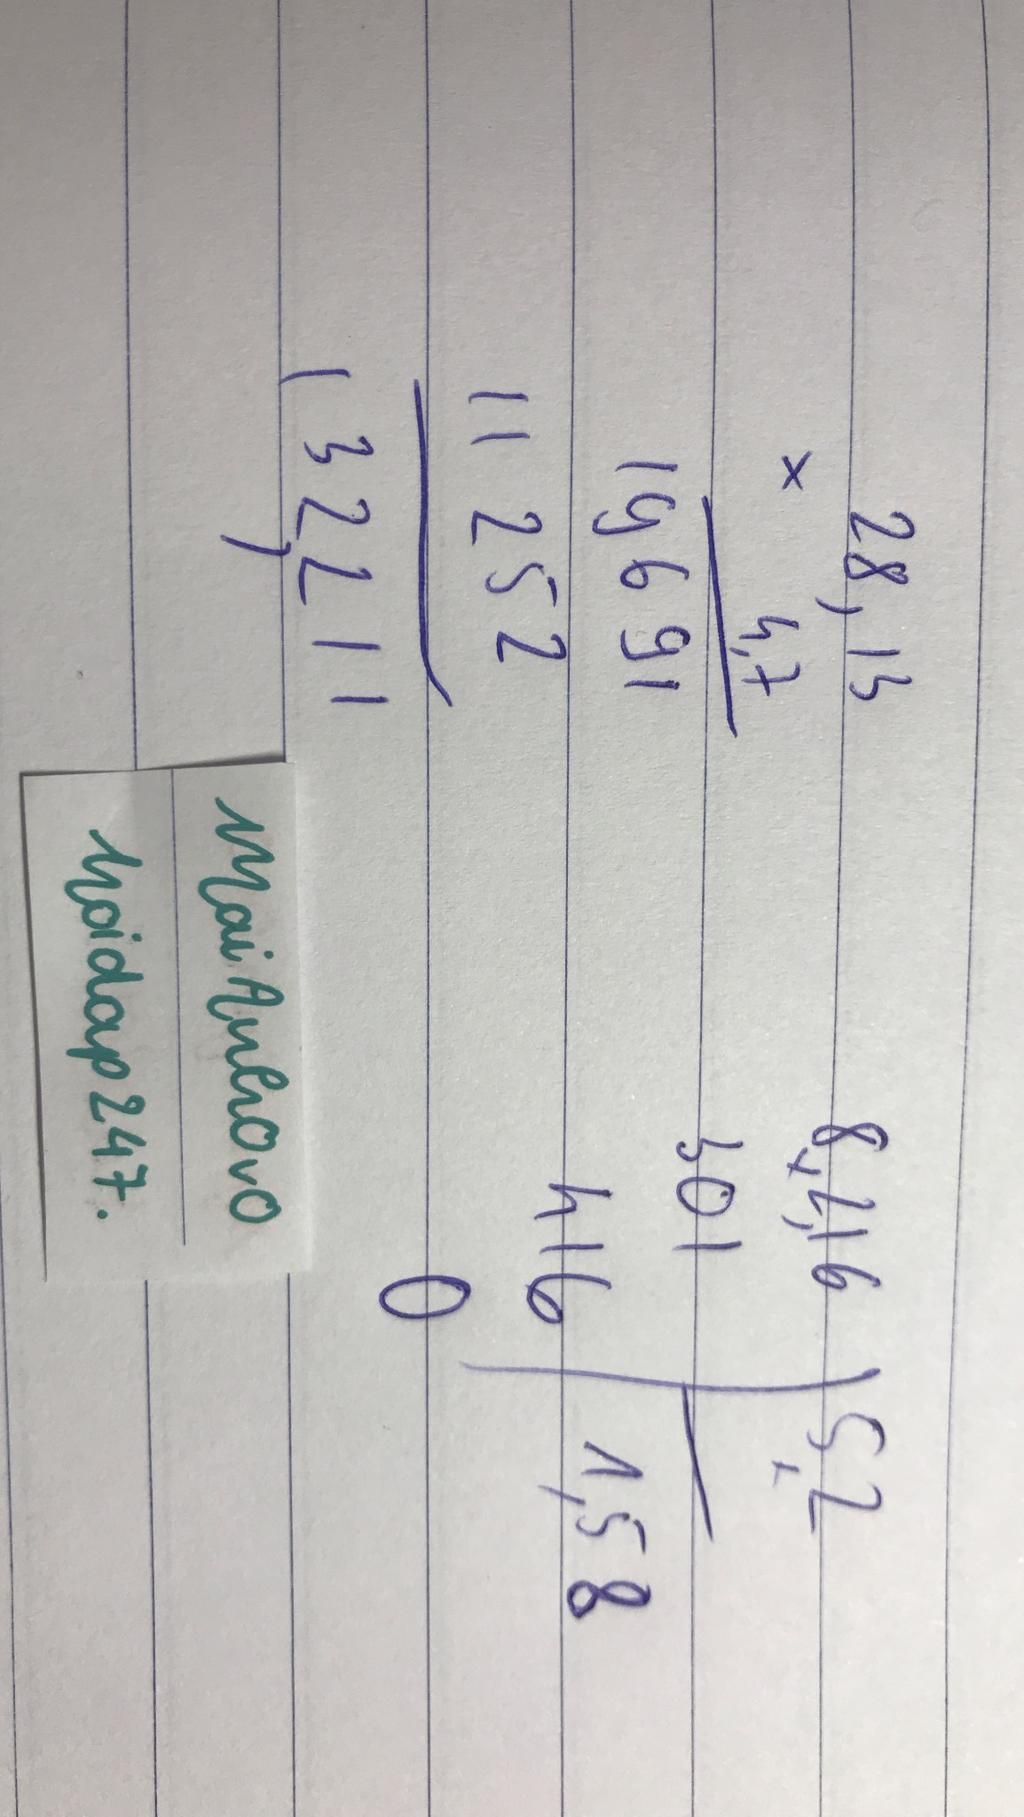 28,13
× 4,7
19691
11252
132,211
8,2,16 5,2
301 1,58
416
0
MaiAnhovo
hoidap247.